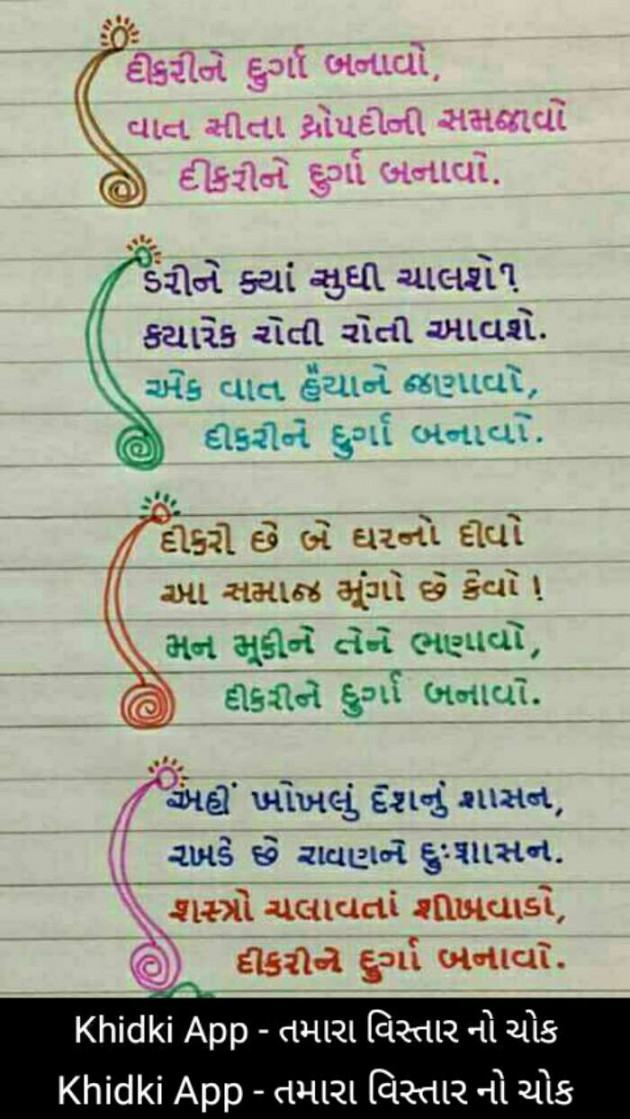 દીકરીને દુર્ગા બનાવો,
વાત સીતા દ્રોપદીની સમજાવો
દીકરીને દુર્ગા બનાવો.
ડરીને ક્યાં સુધી ચાલશે?
ક્યારેક રોતી રોતી આવશે.
એક વાત હૈયાને જણાવો,
દીકરીને દુર્ગા બનાવો.
દીકરી છે બે ઘરનો દીવો
આ સમાજ મૂંગો છે કેવો!
મન મૂકીને તેને ભણાવો,
દીકરીને દુર્ગા બનાવો.
અહીં ખોખલું દેશનું શાસન,
રખડે છે રાવણને દુઃશાસન.
શસ્ત્રો ચલાવતાં શીખવાડો,
દીકરીને દુર્ગા બનાવો.
Khidki App - તમારા વિસ્તાર નો ચોક
Khidki App - તમારા વિસ્તાર નો ચોક